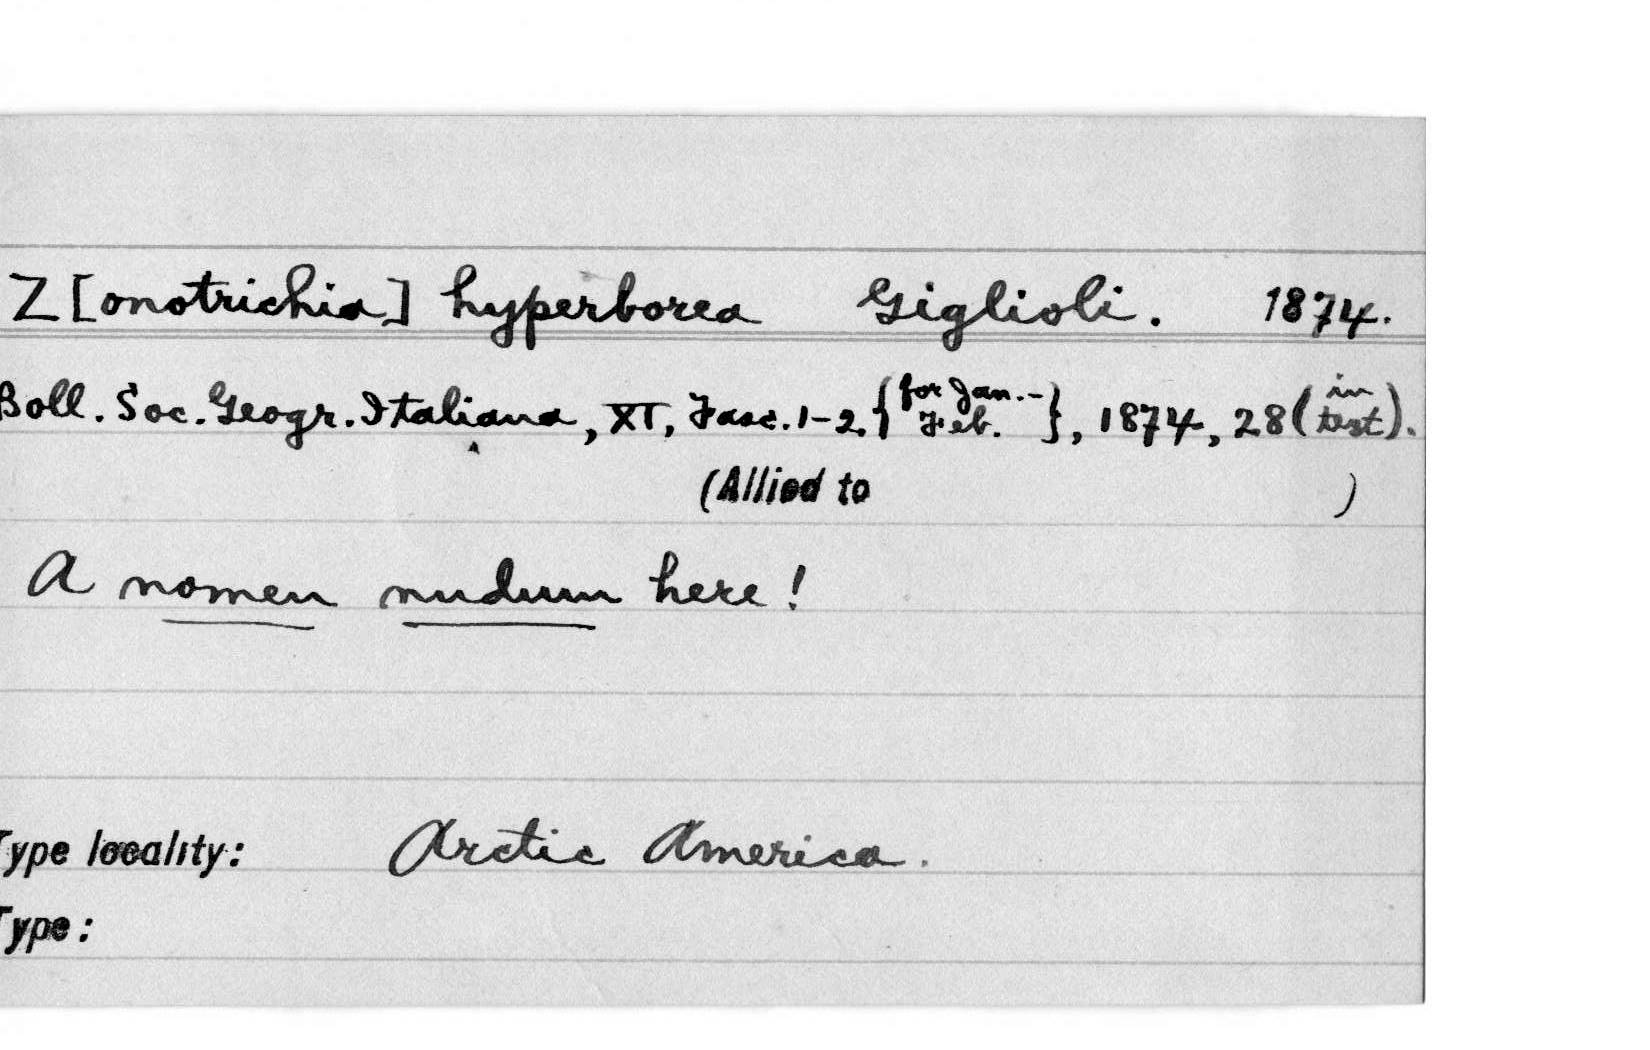 Z[onotrichia] hyperborea Giglioli. 1874.
Boll. Soc. Geogr. Italiana, XI, Fasc. 1-2. {for Jan.-Feb.}, 1874, 28 (in text).
(Allied to )
A nomen nudum here!
Type locality: Arctic America.
Type: